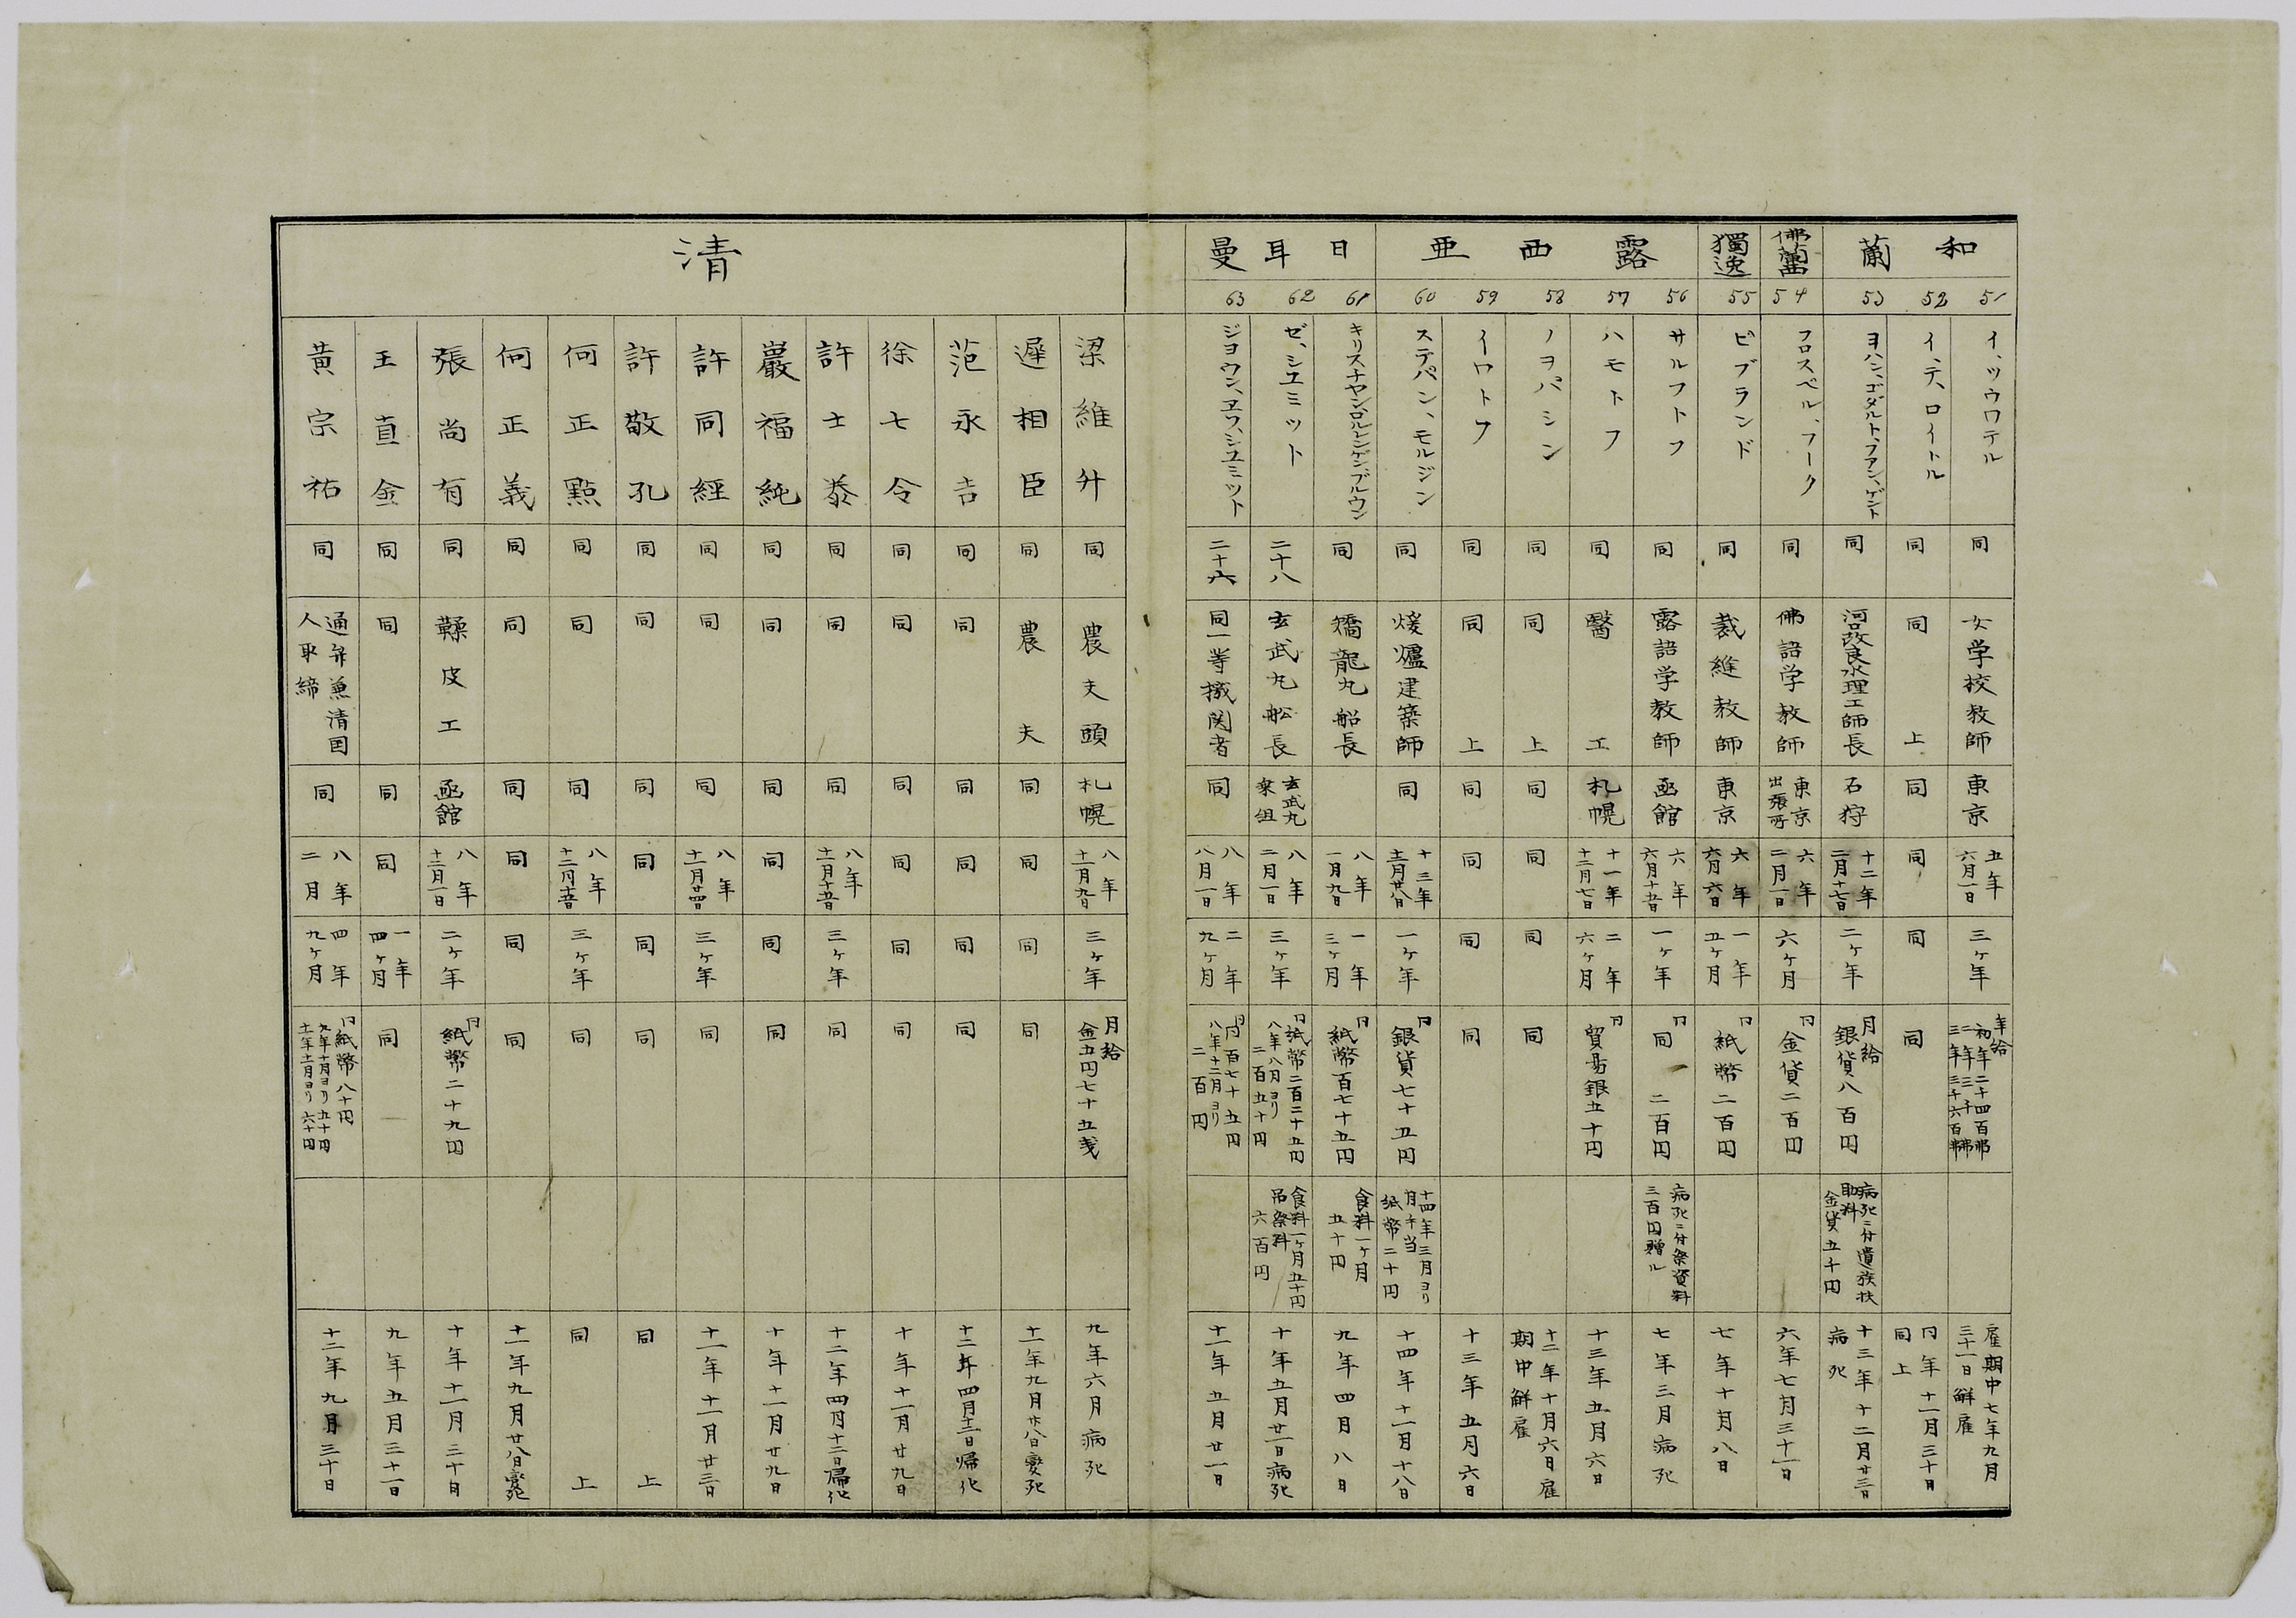 和蘭
51
イ、ツウワテル
同
女学校教師
東京
五年
六月一日
三ヶ年
年給
初年二千四百弗
二年三千弗
三年三千六百弗
雇期中七年九月
三十一日解雇
52
イ、テ、ロイトル
同
同上
同
同
同
同
同年十一月三十日
同上
53
ヨハン、ゴダルト、フアン、ゲント
同
河口改良水理工師長
石狩
十二年
二月十七日
二ヶ年
月給
銀貨八百円
病死ニ付遺族扶
助料
金貨五千円
十三年十二月廿三日
病死
佛蘭西
54
フロスベル、フーク
同
佛語学教師
東京
出張所
六年
二月一日
六ヶ月
同
金貨二百円
六年七月三十一日
獨逸
55
ビブランド
同
裁縫教師
東京
六年
六月六日
一年
五ヶ月
同
紙幣二百円
七年十月八日
露西亜
56
サルフトフ
同
露語学教師
函館
六年
六月十五日
一ヶ年
同
同二百円
病死ニ付祭資料
三百円贈ル
七年三月病死
57
ハモトフ
同
醫工
札幌
十一年
十二月七日
二年
六ヶ月
同
貿易銀五十円
十三年五月六日
58
ノヲパシン
同
同上
同
同
同
同
十二年十月六日雇
期中解雇
59
イワトフ
同
同上
同
同
同
同
十三年五月六日
60
ステパン、モルジン
同
煖爐建築師
同
十三年
十一月廿八日
一ヶ年
同
銀貨七十五円
十四年三月ヨリ
月手当
紙幣二十円
十四年十一月十八日
日耳曼
61
キリスチヤン、ロルレンゲン、ブルウン
同
矯龍丸船長
八年
一月九日
一年
三ヶ月
同
紙幣百七十五円
食料一ヶ月
五十円
九年四月八日
62
ゼ、シユミット
二十八
玄武丸船長
玄武丸
乗組
八年
二月一日
三ヶ年
同
紙幣二百二十五円
八年八月ヨリ
二百五十円
食料一ヶ月五十円
吊祭料
六百円
十年五月廿一日病死
63
ジヨウン、ヱフ、シユミツト
二十六
同一等機関者
同
八年
八月一日
二年
九ヶ月
同
同百七十五円
八年十二月ヨリ
二百円
十一年五月廿一日
清
梁維升
同
農夫頭
札幌
八年
十一月九日
三ヶ年
月給
金五円七十五銭
九年六月病死
遲相臣
同
農夫
同
同
同
同
十一年九月廿八日変死
范永吉
同
同
同
同
同
同
十二年四月十二日帰化
徐七令
同
同
同
同
同
同
十年十一月廿九日
許士泰
同
同
同
八年
十一月十五日
三ヶ年
同
十二年四月十二日帰化
巖福純
同
同
同
同
同
同
十年十一月廿九日
許同經
同
同
同
八年
十一月廿四日
三ヶ年
同
十一年十一月廿三日
許敬孔
同
同
同
同
同
同
同上
何正點
同
同
同
八年
十二月十五日
三ヶ年
同
同上
何正義
同
同
同
同
同
同
十一年九月廿八日変死
張尚有
同
鞣皮工
函館
八年
十二月一日
二ヶ年
同
紙幣二十九円
十年十一月三十日
王直金
同
同
同
同
一年
四ヶ月
同
九年五月三十一日
黄宗祐
同
通弁兼清国
人取締
同
八年
二月
四年
九ヶ月
同
紙幣八十円
九年十月ヨリ五十円
十一年十一月ヨリ六十円
十二年九月三十日